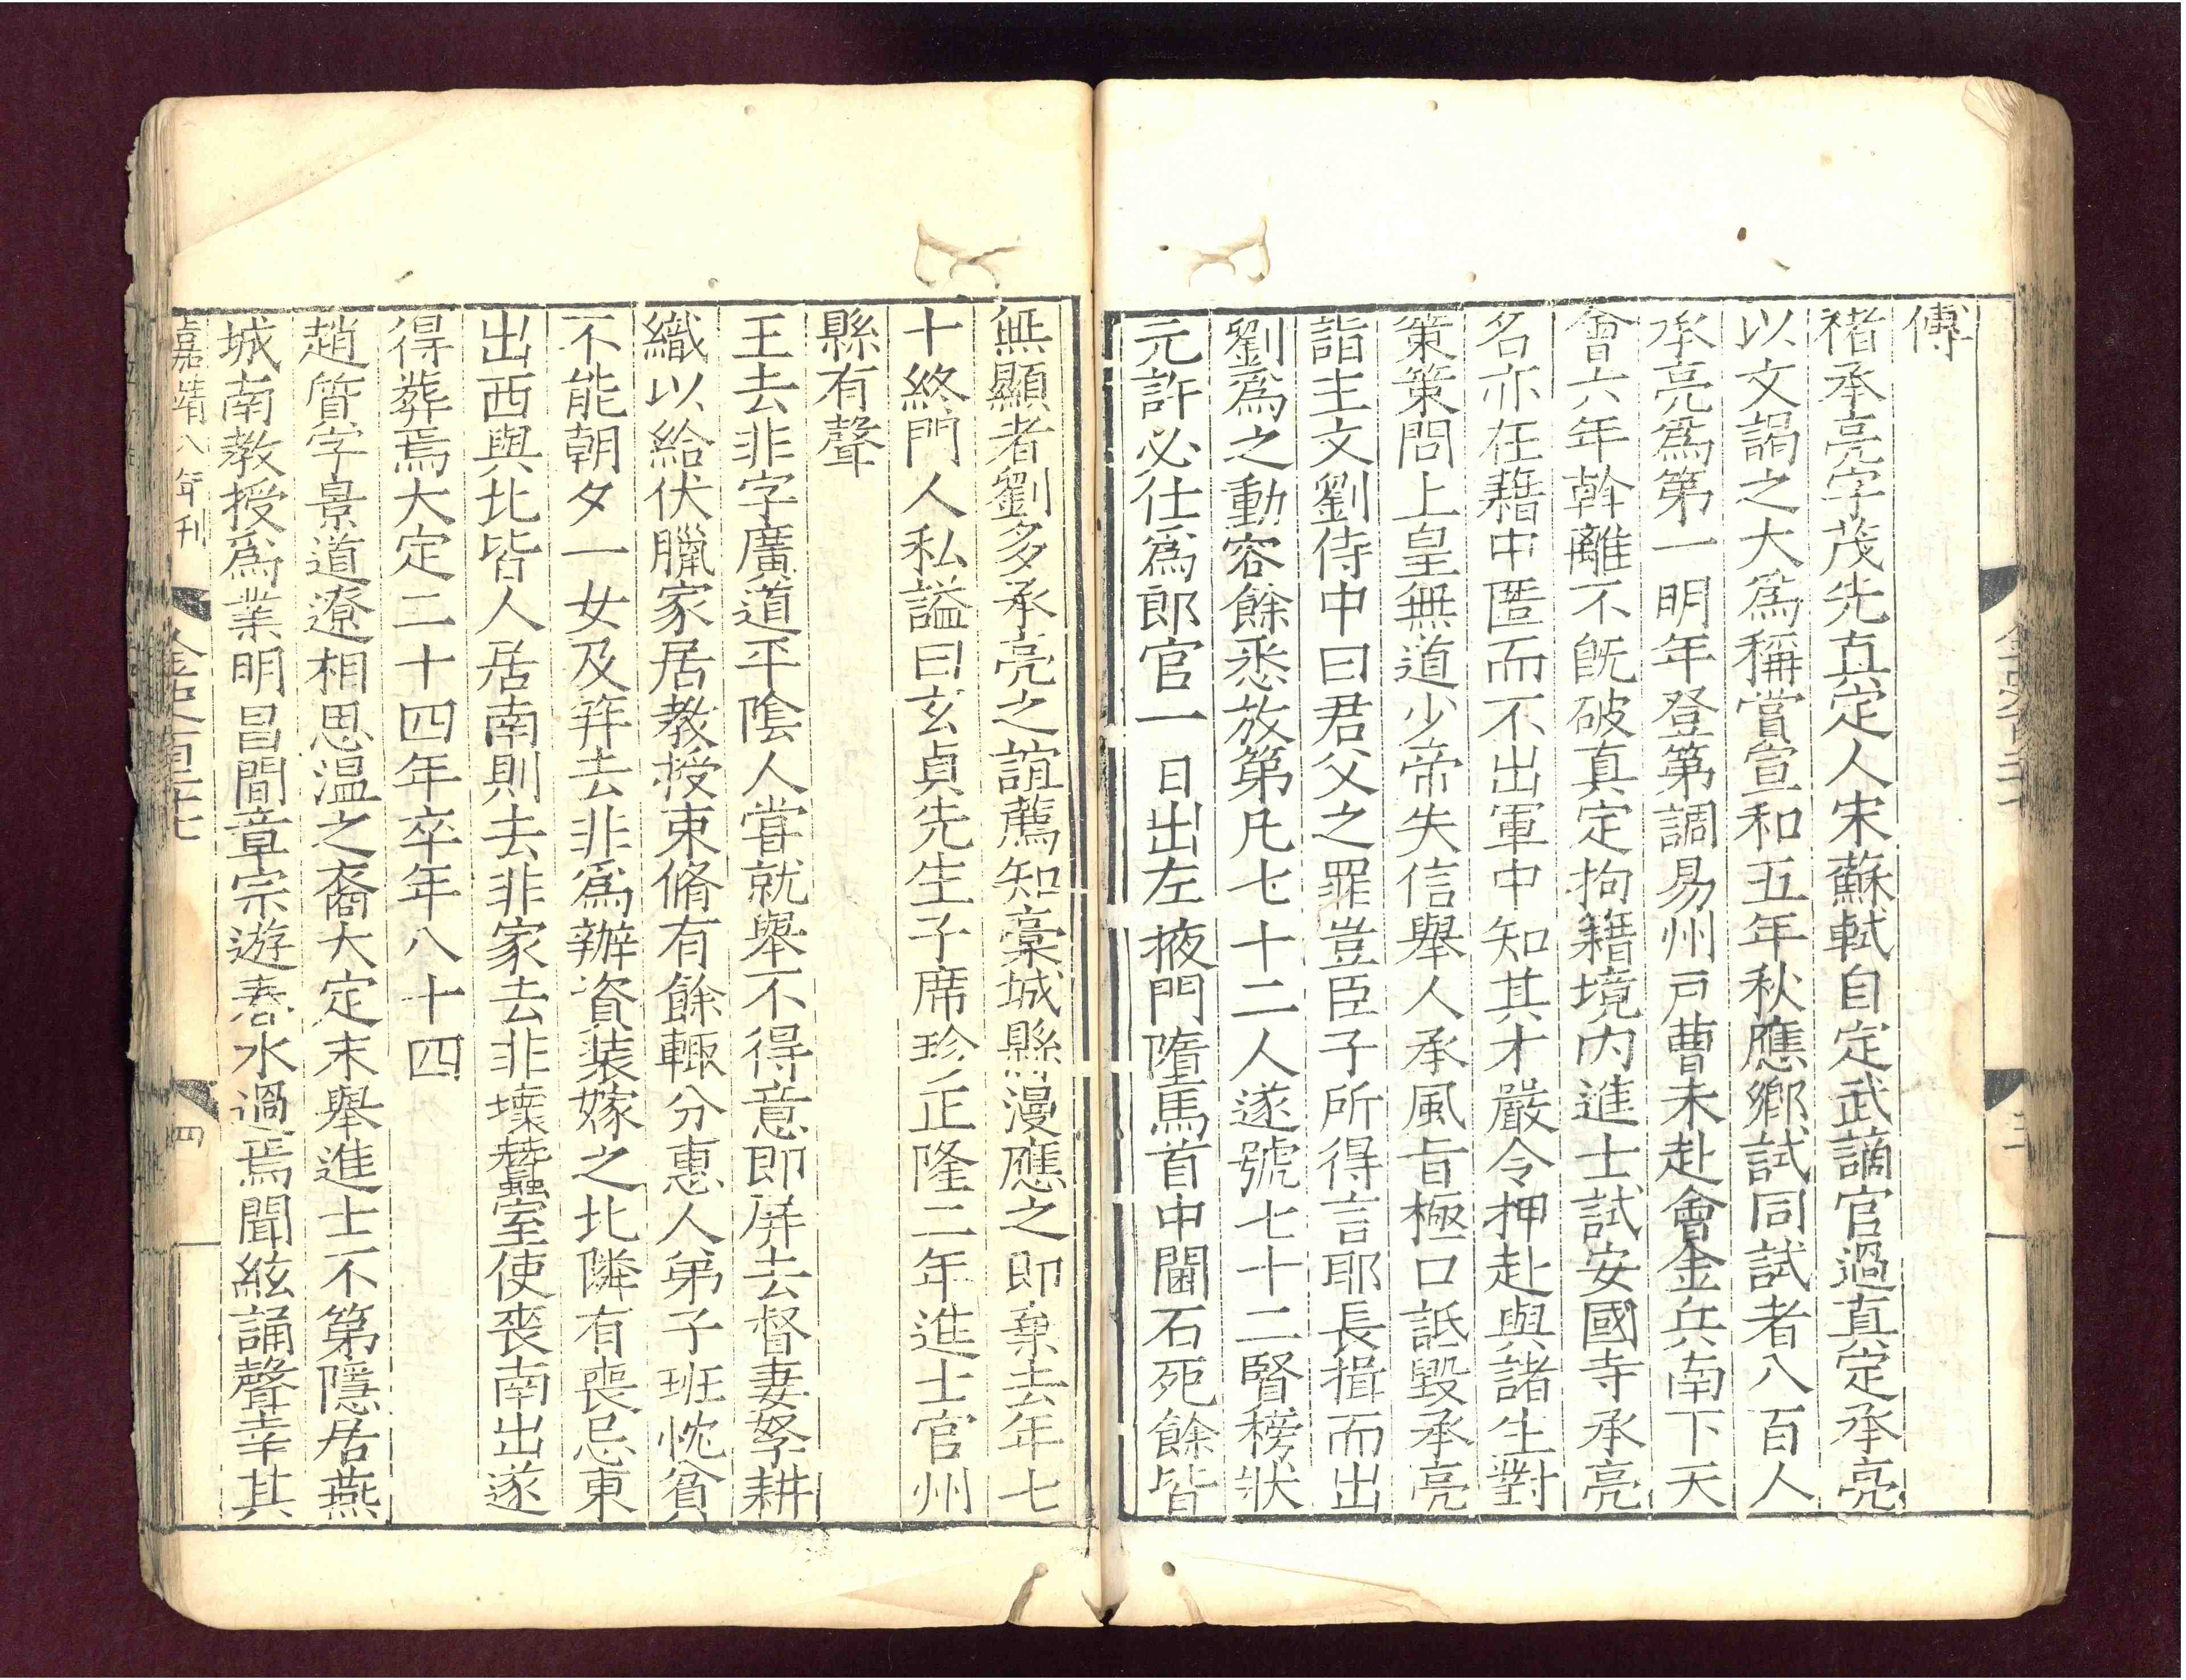 傳
褚承亮字茂先真定人宋蘇軾自定武謫官過真定承亮
以文謁之大為稱賞宣和五年秋應鄉試同試者八百人
承亮為第一明年登第調易州戸曹未赴會金兵南下天
會六年斡離不既破真定拘籍境內進士試安國寺承亮
名亦在籍中匿而不出軍中知其才嚴令押赴與諸生對
策策問上皇無道少帝失信舉人承風旨極口詆毀承亮
詣主文劉侍中曰君父之罪豈臣子所得言耶長揖而出
劉為之動容餘悉放第凡七十二人遂號七十二賢榜狀
元許必仕為郎官一日出左掖門隋馬首中閫石死餘皆
無顯者劉多承亮之誼薦知藁城縣漫應之即棄去年七
十終門人私謚曰玄貞先生子席珍正隆二年進士官州
縣有聲
王去非字廣道平陰人甞就舉不得意即屏去督妻孥耕
織以給伏臘家居教授束脩有餘輒分惠人弟子班忱貧
不能朝夕一女及笄去非為辦資裝嫁之北隣有喪忌東
出西與北皆人居南則去非家去非壞蠶室使喪南出遂
得葬焉大定二十四年卒年八十四
趙質字景道遼相思温之裔大定末舉進士不第隱居燕
城南教授為業明昌間章宗遊春水過焉聞絃誦聲幸其
嘉靖八年刊
金史百二十七
四